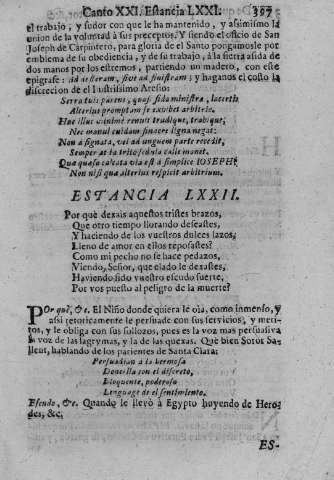 Canto XXI. Estancia LXXI. 397
el trabajo, y sudor con que le ha mantenido, y asimismo la
union de la voluntad à sus preceptos. Y siendo el oficio de San
Joseph de Carpintero, para gloria de el Santo pongamosle por
emblema de su obediencia, y de su trabajo, à la sierra asida de
dos manos por los estremos, partiendo un madero, con este
epigrafe: Ad dexteram, sive ad sinistram; y haganos el costo la
discrecion de el Ilustrissimo Aresio:
Serra tuis parens, quasi sida ministra, lacertis
Alterius promptam se exhibet arbitrio.
Hac illuc minimè renuit trudique, trahique;
Nec manui cuidam sinceret ligna negat:
Non à signata, vel ad unguem parte recedit,
Semper at in trito sedula calle manet.
Qua quasi calcata via est à simplice IOSEPH:
Non nisi qua alterius respicit arbitrium.
ESTANCIA LXXII.
Por què dexais aquestos tristes brazos,
Que otro tiempo llorando deseastes,
Y haciendo de los vuestros dulces lazos,
Lleno de amor en ellos reposastes?
Como mi pecho no se hace pedazos,
Viendo, Señor, que elado le dexastes,
Haviendo sido vuestro escudo fuerte,
Por vos puesto al peligro de la muerte?
Por què, &c. El Niño donde quiera le oìa, como inmenso, y
assi retoricamente le persuade con sus servicios, y meri-
tos, y le obliga con sus sollozos, pues es la voz mas persuasiva
la voz de las lagrymas, y la de las quexas. Què bien Sotor Sa-
lleut, hablando de los parientes de Santa Clara:
Persuadian à la hermosa
Doncella con el discreto,
Eloquente, poderoso
Lenguage de el sentimiento.
Siendo, &c. Quando le llevò à Egypto huyendo de Hero-
des, &c.
ES-